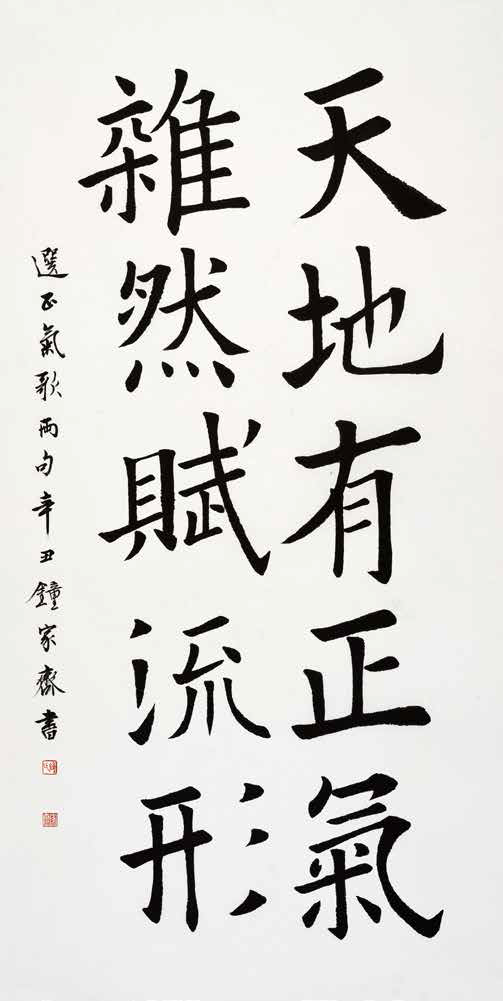 天地有正氣
雜然賦流形
選正氣歌兩句辛丑鐘家齋書